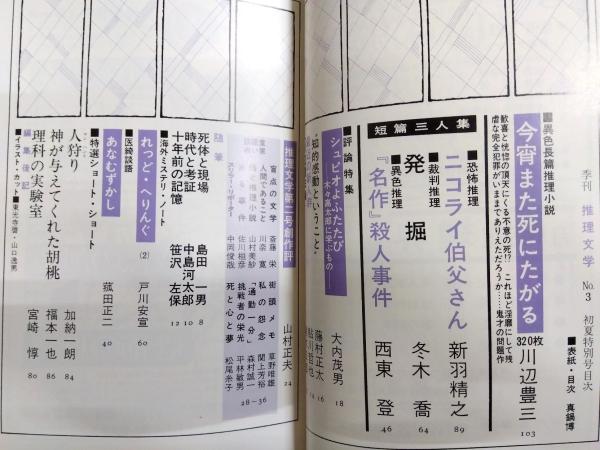 季刊 推理文学 No.3 初夏特別号目次 ■表紙・目次 真鍋博
■異色長編推理小説
今宵また死にたがる 320枚 川辺豊三 103
歓喜と恍惚の頂天にくる不意の死!? これほど淫靡にして残
虐な完全犯罪がいままでありえただろうか……鬼才の問題作
短篇三人集
■恐怖推理
ニコライ伯父さん 新羽精之 89
■裁判推理
発掘 冬木喬 64
■異色推理
『名作』殺人事件 西東登 46
■評論特集
シュピオよふたたび 大内茂男 18
木々高太郎に学ぶもの
“知的感動ということ” 藤村正太 16
推理文学第二号創作評 山村正夫 24
盲点の文学 斎藤栄
人間であること 川奈寛
山村美紗
佐川桓彦
スリラー・リポーター 中岡俊哉
街頭メモ 草野唯雄
私の怨念 関上芳裕
「通勤一分」 森村誠一
挑戦者の栄光 平林敏男
死と心と夢 松尾糸子
28-36
随筆
死体と現場 島田一男 8
時代と考証 中島河太郎 10
十年前の記憶 笹沢左保 12
■海外ミステリ・ノート
れっど・へりんぐ (2) 戸川安宣 60
■医療談語
あなむずかし 菰田正二 40
■特選ショート・ショート
人狩り 加納一朗 84
神が与えてくれた胡桃 福本一也 86
理科の実験室 宮崎惇 80
編集後記
■イラスト・カット ■東光寺啓・山口逸男